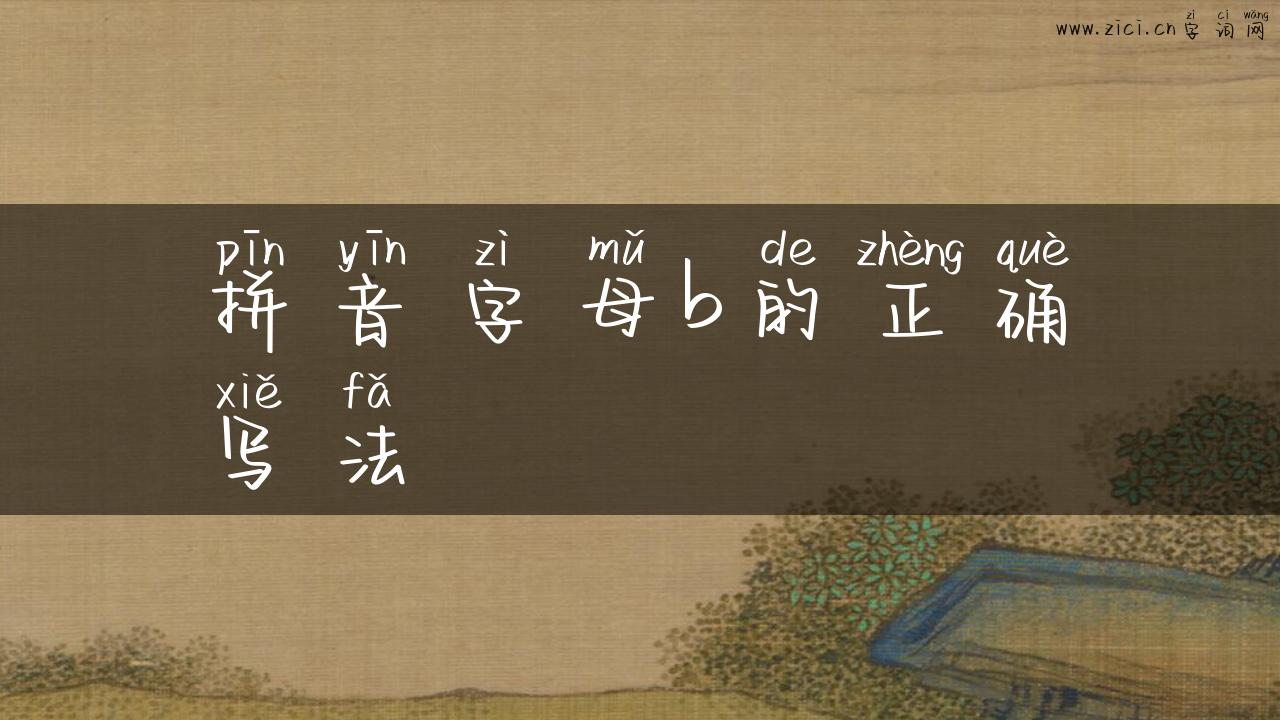 zì cí wǎng
www.zici.cn 字 词 网
pīn yīn zì mǔ de zhèng què
拼 音 字 母 b 的 正 确
xiě fǎ
写 法